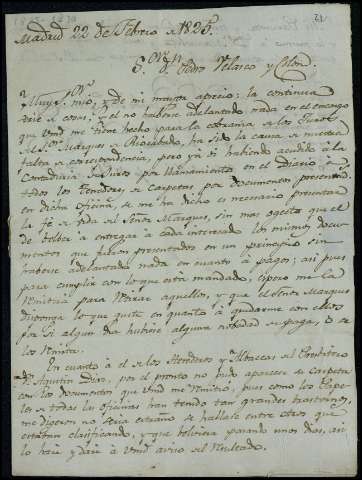 Madrid 22 de Febrero de 1825
S.or D.n Pedro Velasco y Colon.
Muy S.or mio, y de mi mayor aprecio: la continua
serie de cosas, y el no haberse adelantado nada en el encargo
que Vmd me tiene hecho para la cobranza de los Juros
del S.or Marques de Riocabado, ha sido la causa de nuestra
falta de correspondencia, pero ya habiendo acudido a la
Contaduria de Juros por llamamiento en el Diario a
todos los Tenedores de Carpetas por documentos presentad.
en dicha oficina, se me ha dicho es necesario presentar
la fe de vida del Señor Marques, sin mas objeto que el
de bolber a entregar a cada interesado los mismos docu-
mentos que fueron presentados en un principio sin
haberse adelantado nada en cuanto a pagos; asi pues
para cumplir con lo que está mandado, espero me la
remitirá para retirar aquellos, y que el Señor Marques
disponga lo que guste en quanto á quedarme con ellos
por si algun dia hubiese alguna novedad de pago, ó se
los remita.
En cuanto á el de los Herederos y Albaceas del Presbitero
D.n Agustin Diaz, por el pronto no pudo aparecer su carpeta
con los documentos que Vmd me remitió, pues como los Pape-
les de todas las oficinas han tenido tan grandes trastornos,
me digeron no seria estraño se hallase entre otros que
estaban clasificando, y que bolviera pasando unos dias, asi
lo haré y daré á Vmd aviso del resultado.